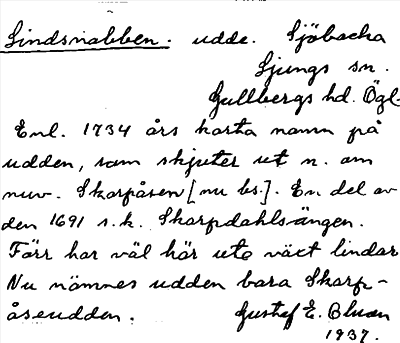 Lindsnabben. udde. Sjöbacka
Ljungs sn.
Gullbergs hd. Ögl.
Enl. 1734 års karta namn på
udden, som skjuter ut n. om
nuv. Skarpåsen [nu bs.]. En del av
den 1691 s.k. Skarpdahlsängen.
Förr har väl här ute växt lindar
Nu nämnes udden bara Skarp-
åsudden. Gustaf E. Bluan
1937.